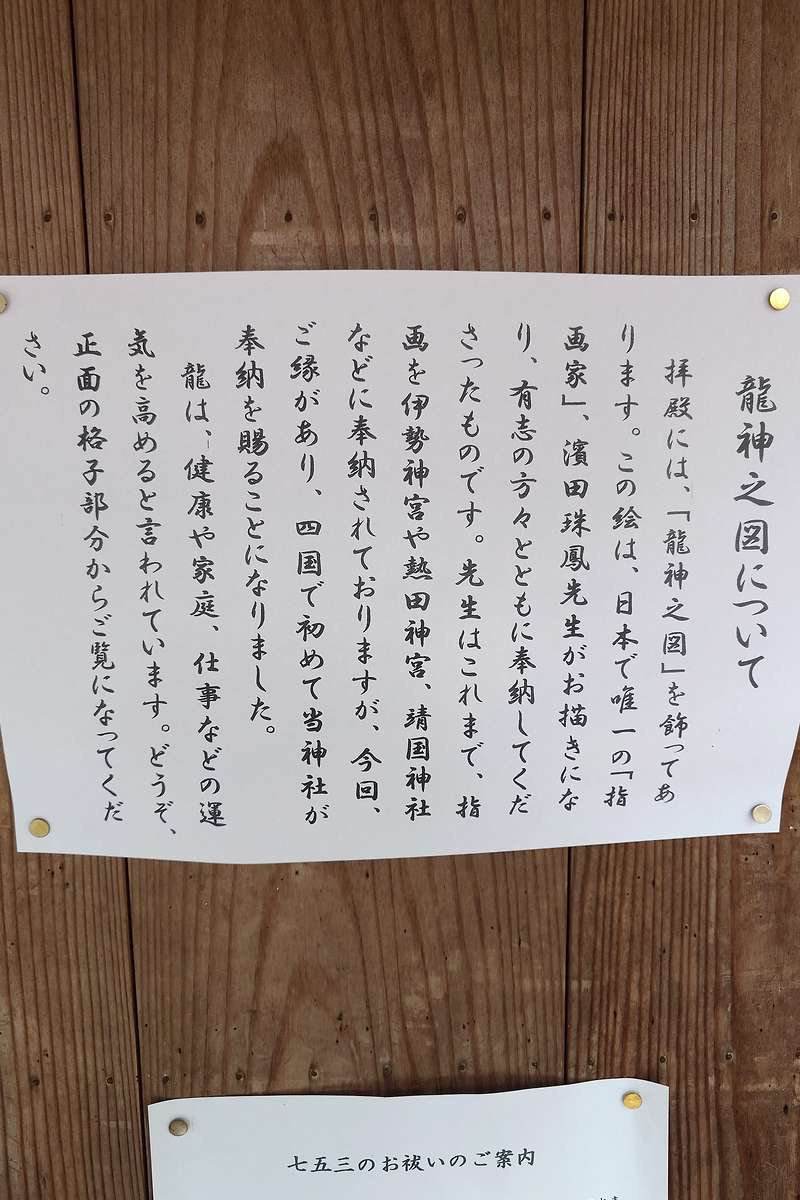 龍神之図について
拝殿には、「龍神之図」を飾ってあ
ります。この絵は、日本で唯一の「指
画家」、濱田珠鳳先生がお描きにな
り、有志の方々とともに奉納してくだ
さったものです。先生はこれまで、指
画を伊勢神宮や熱田神宮、靖国神社
などに奉納されておりますが、今回、
ご縁があり、四国で初めて当神社が
奉納を賜ることになりました。
龍は、健康や家庭、仕事などの運
気を高めると言われています。どうぞ、
正面の格子部分からご覧になってくだ
さい。
七五三のお祓いのご案内